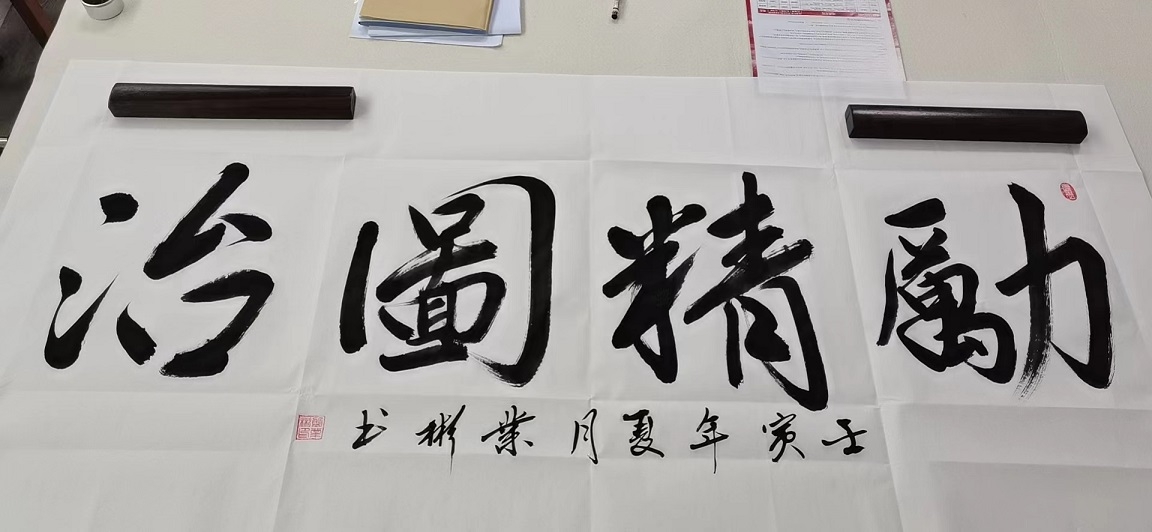 勵精圖治
壬寅年夏月業彬书